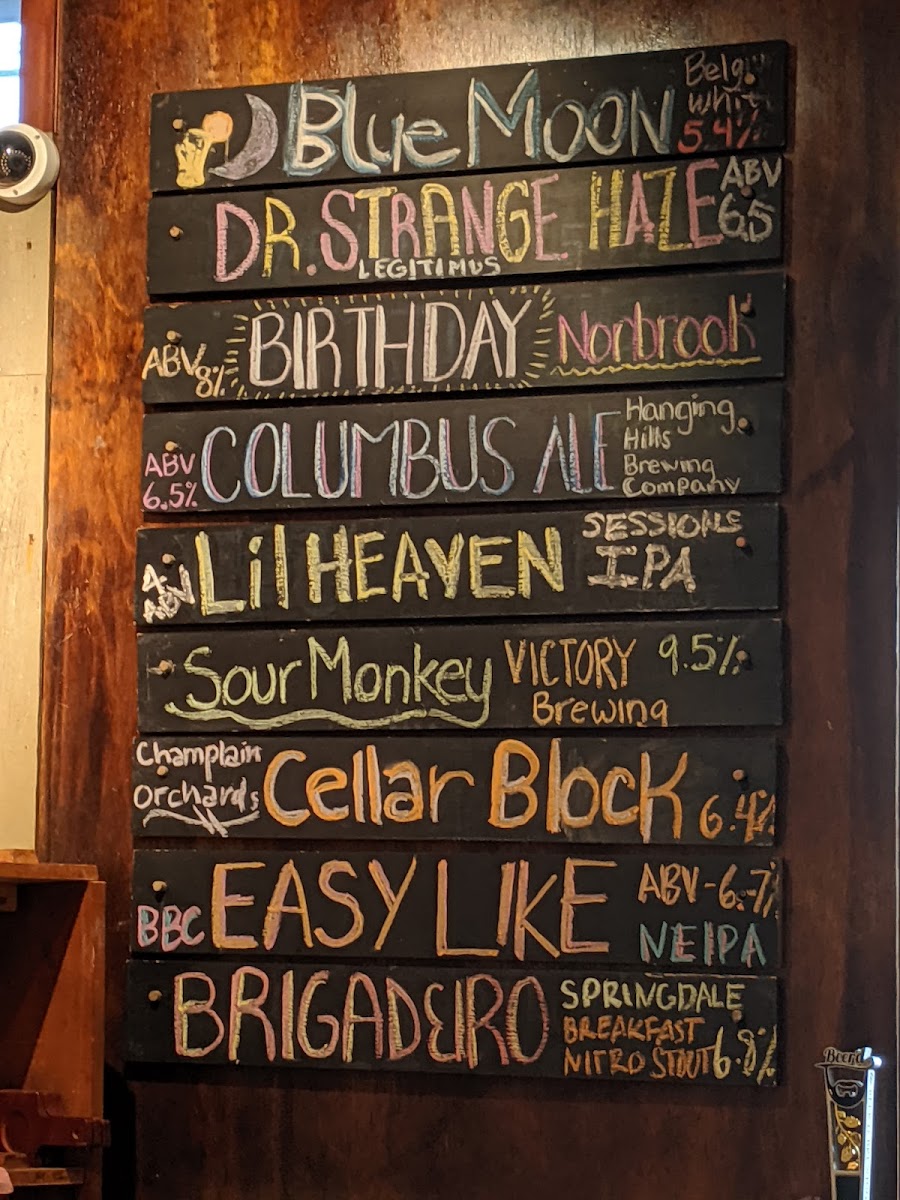 Blue Moon
Belg
Whit
5.4%
DR. STRANGE HAZE
ABV
6.5
LEGITIMUS
ABV
8%
BIRTHDAY
Norbrook
ABV
6.5%
COLUMBUS ALE
Hanging
Hills
Brewing
Company
4
ABV
Lil HEAVEN
SESSIONS
IPA
Sour Monkey
VICTORY
Brewing
9.5%
Champlain
Orchards
Cellar Block
BBC
EASY LIKE
ABV-6.7%
NEIPA
BRIGADEIRO
SPRINGDALE
BREAKFAST
NITRO STOUT
6.8%